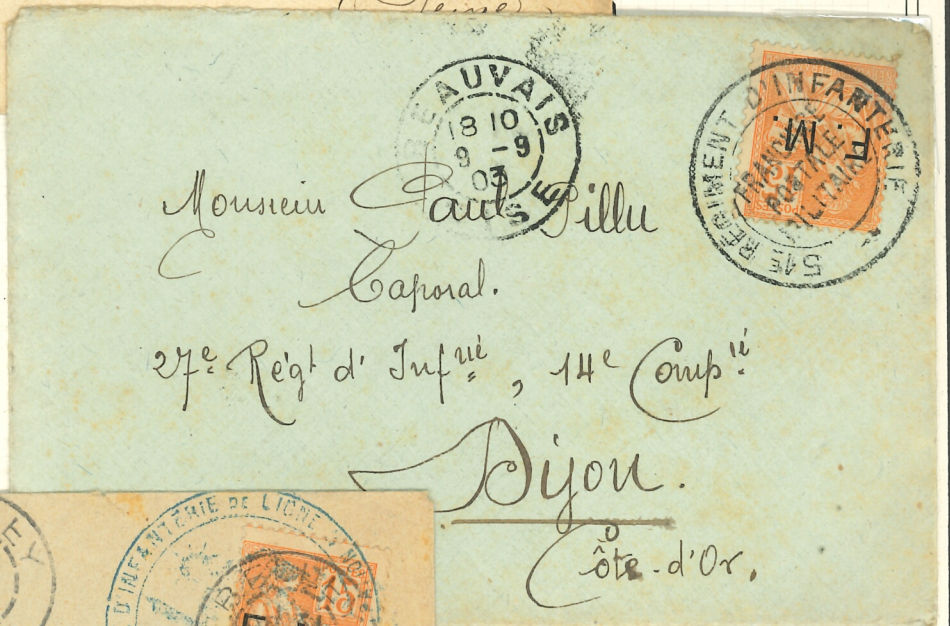 (Seine)
BEAUVAIS
18 10
9 -9
03
OISE
51E RÉGIMENT D'INFANTERIE
FRANCHISE
POSTALE
MILITAIRE
F. M.
15
Monsieur Paul Pillu
Caporal.
27e Régt d'Infrie, 14e Compie
Dijon.
Côte-d'Or.
D'INFANTERIE DE LIGNE
15
F
EY